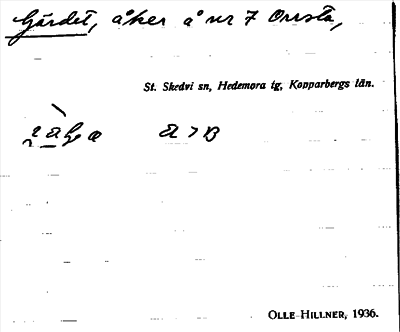 Gärdet, åker å nr 7 Onsta,
St. Skedvi sn, Hedemora tg, Kopparbergs län.
OLLE HILLNER, 1936.